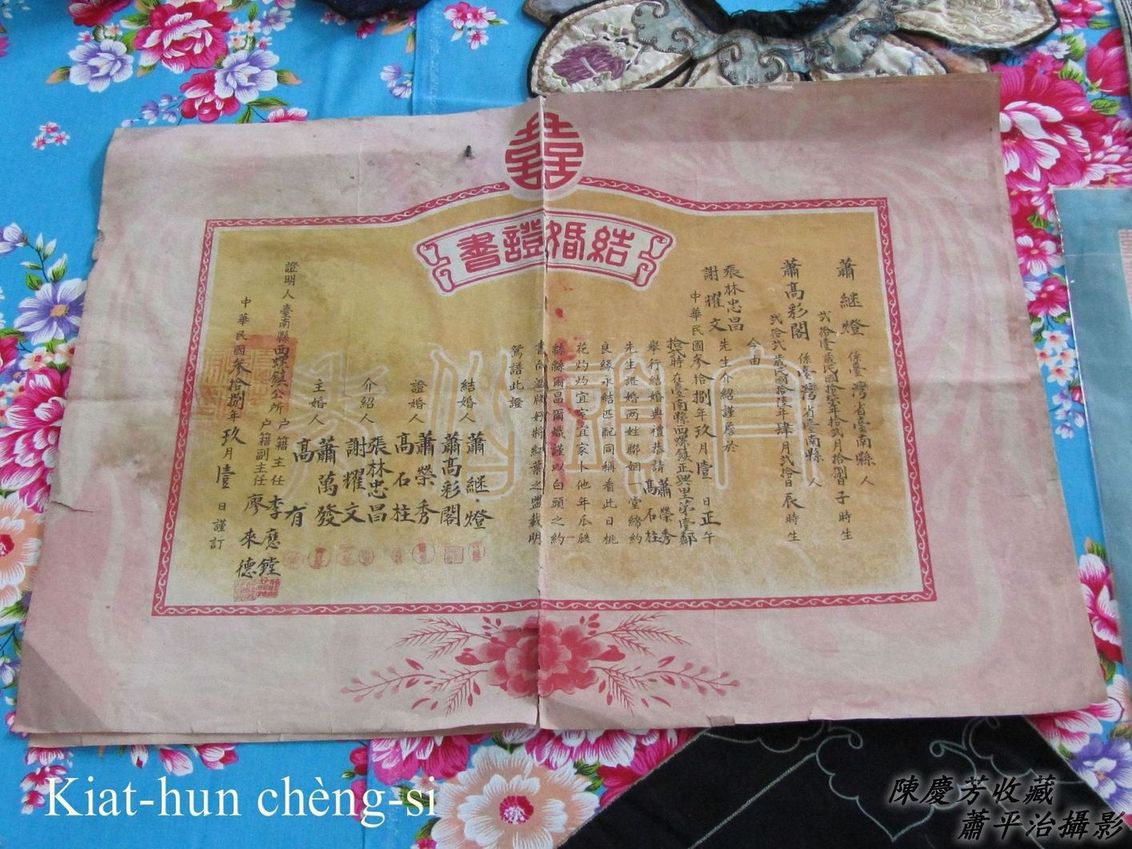 囍
結婚證書
蕭継燈 係臺灣省臺南縣人
貳拾壹歲民國拾年拾貳月拾捌日子時生
蕭高彩閣 係臺灣省臺南縣人
貳拾貳歲民國拾年肆月貳拾日辰時生
今由
張林忠昌
謝耀文 先生介紹謹詹於
中華民國參拾捌年玖月壹日正午
拾時在臺南縣西螺鎮正興里第壹鄰
舉行結婚典禮恭請蕭榮秀高石柱
先生證婚兩姓聯姻一堂締約
良緣永結匹配同稱看此日桃
花灼灼宜室宜家卜他年瓜瓞
緜緜爾昌爾熾謹以白頭之約
書向鴻牋好將紅葉之盟載明
鴛譜此證
結婚人 蕭継燈
蕭高彩閣
證婚人 蕭榮秀
高石柱
介紹人 張林忠昌
謝耀文
主婚人 蕭萬發
高有
證明人 臺南縣西螺鎮公所戶籍主任 李應鏜
戶籍副主任 廖來德
中華民國參拾捌年玖月壹日謹訂
Kiat-hun chèng-si
陳慶芳收藏
蕭平治攝影